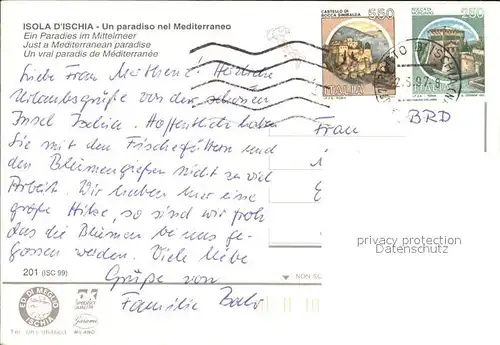 ISOLA D'ISCHIA - Un paradiso nel Mediterraneo
Ein Paradies im Mittelmeer
Just a Mediterranean paradise
Un vrai paradis de Méditerranée
CASTELLO DI
ROCCA SINIBALDA
550
ITALIA
ROCCA DI
ITALIA
Liebe Frau! Herzliche
Urlaubsgrüße von der schönen
Insel Ischia. Hoffentlich haben
Sie mit den Fischefüttern und
den Blumengießen nicht zu viel
Arbeit. Wir haben hier eine
große Hitze, so sind wir froh
das die Blumen bei uns ge-
gossen werden. Viele liebe
Grüße von
Familie
Frau
BRD
privacy protection
Datenschutz
201 (ISC 99)
NON SC
ED. DI MEGLIO
ISCHIA
MILANO